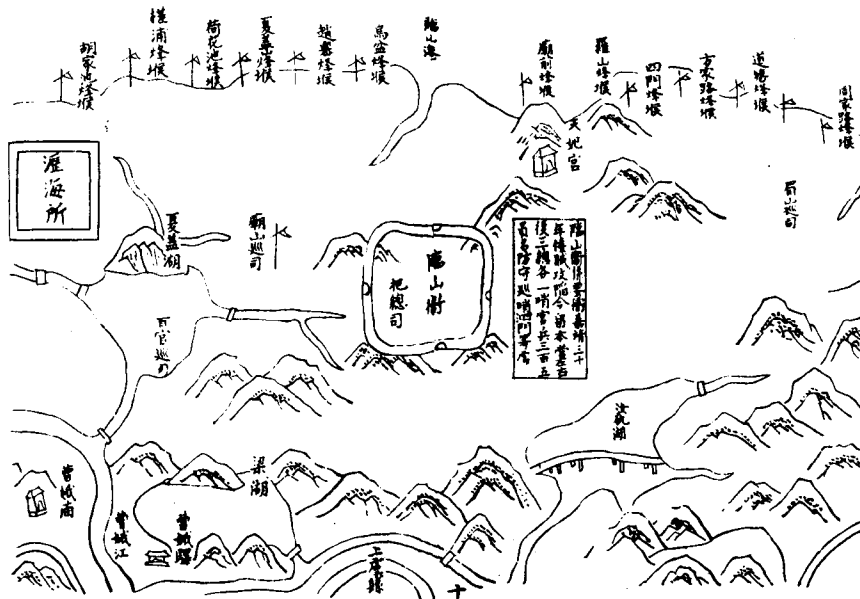 胡家池烽堠
橫浦烽堠
荷花池烽堠
夏蓋烽堠
趙霤烽堠
烏盆烽堠
臨山港
廟前烽堠
羅山烽堠
四門烽堠
方家路烽堠
道塘烽堠
周家路烽堠
天地宮
蜀山巡司
瀝海所
夏蓋湖
廟山巡司
臨山衛
把總司
臨山衛係要衝嘉靖三十
年倭賊攻陷今留本衛左右
後三總各一哨官兵三百五
百官巡司
汝仇湖
梁湖
曹娥廟
曹娥江
曹娥驛
上虞縣
十